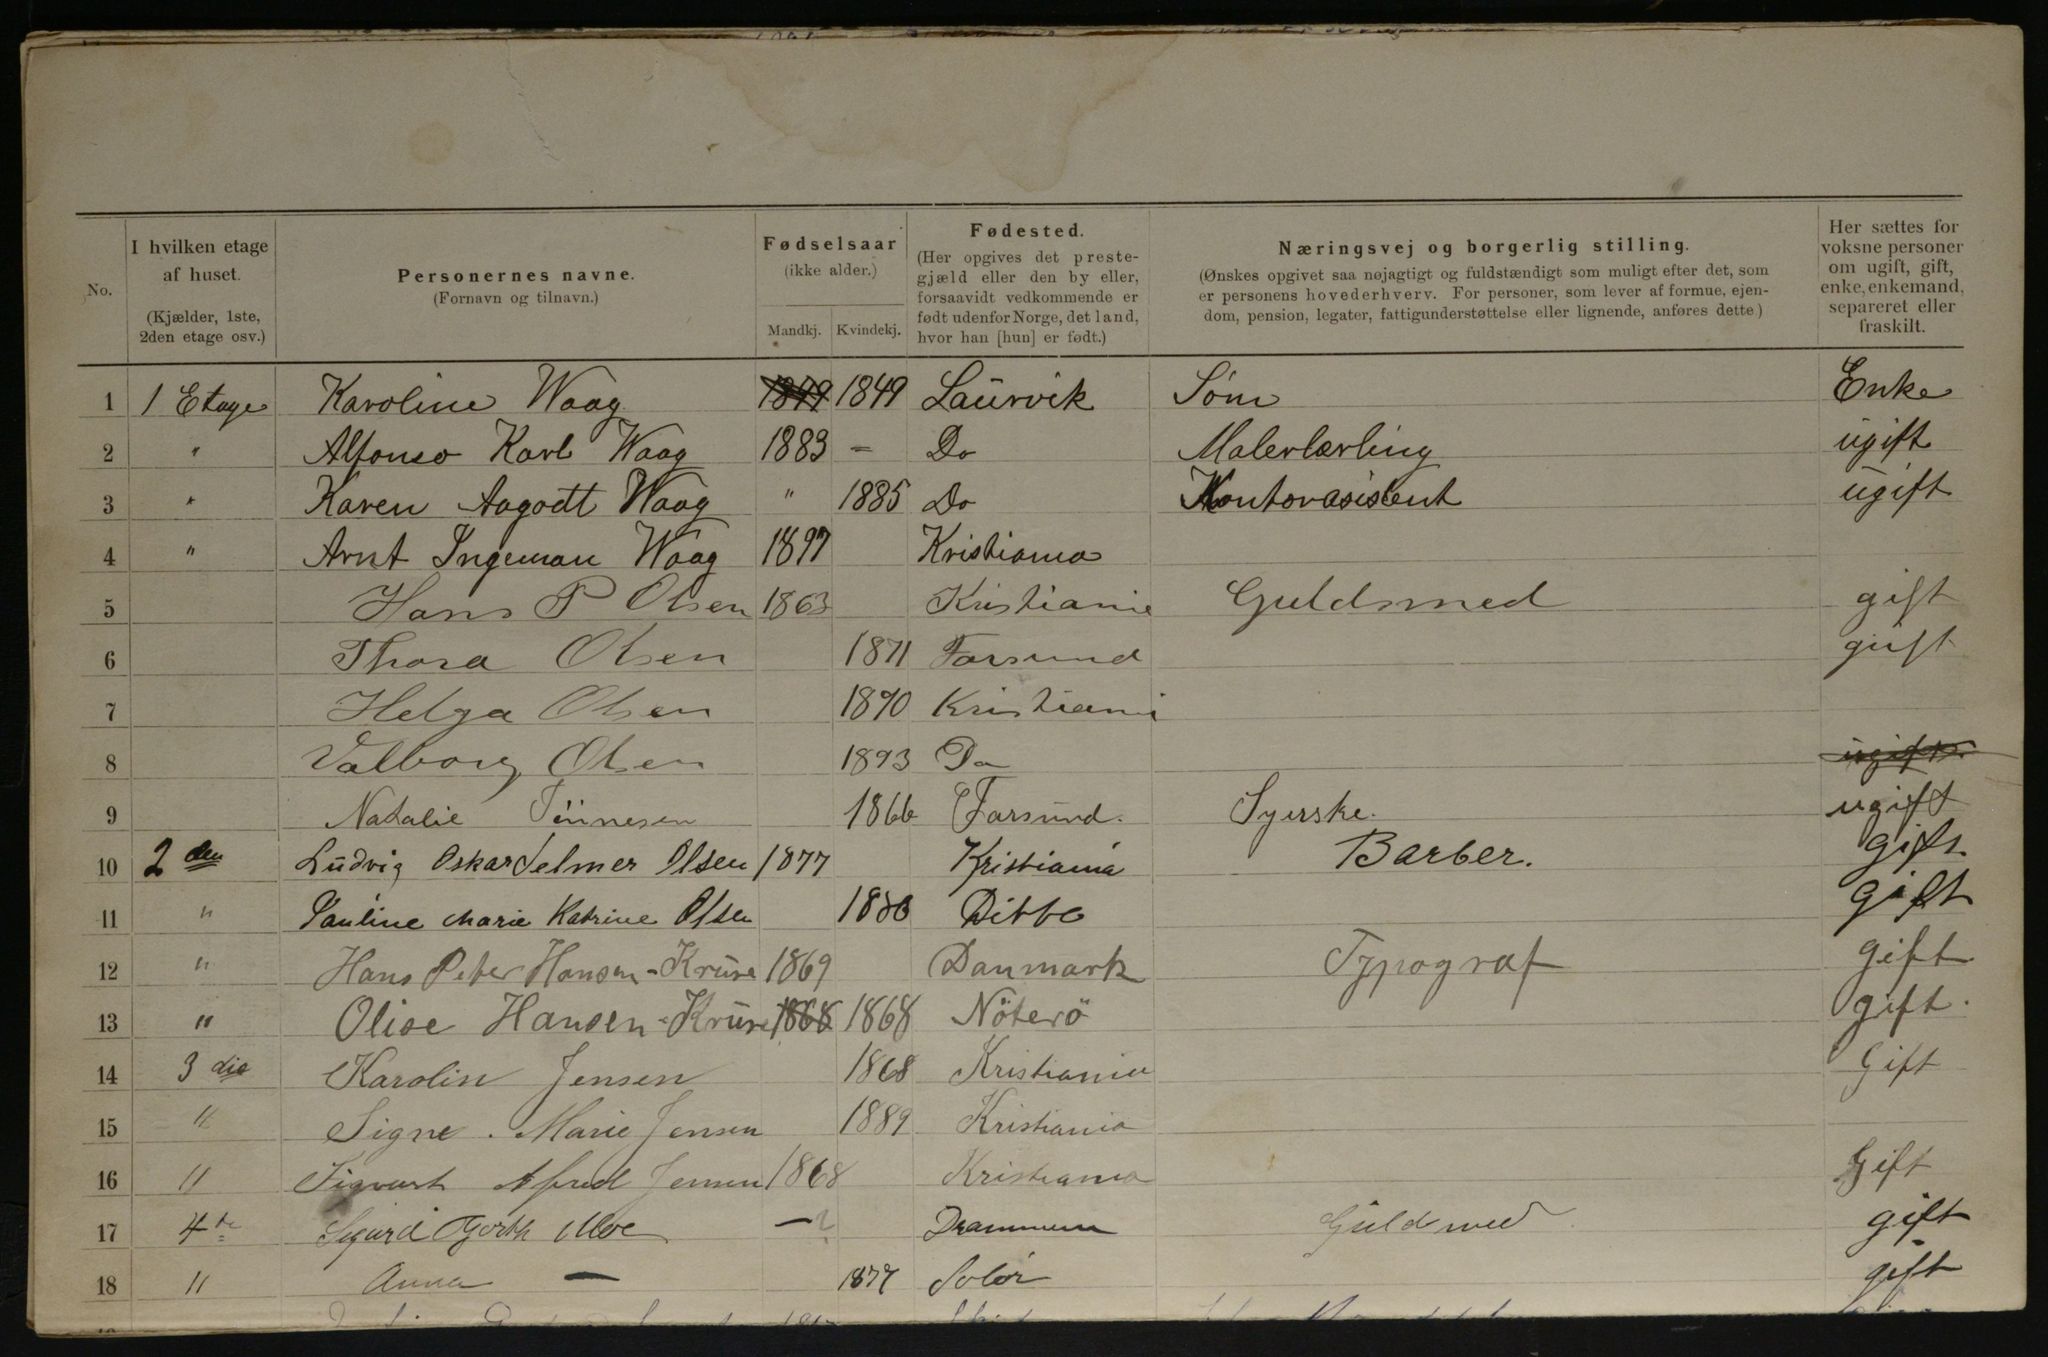 No.
I hvilken etage
af huset.
(Kjælder, 1ste,
2den etage osv.)
Personernes navne.
(Fornavn og tilnavn.)
Fødselsaar
(ikke alder.)
Mandkj. Kvindekj.
Fødested.
(Her opgives det preste-
gjæld eller den by eller,
forsaavidt vedkommende er
født udenfor Norge, det land,
hvor han [hun] er født.)
Næringsvej og borgerlig stilling.
(Ønskes opgivet saa nøjagtigt og fuldstændigt som muligt efter det, som
er personens hovederhverv. For personer, som lever af formue, ejen-
dom, pension, legater, fattigunderstøttelse eller lignende, anføres dette)
Her sættes for
voksne personer
om ugift, gift,
enke, enkemand,
separeret eller
fraskilt.
1 1 Etage Karoline Waag 1849 1849 Laurvik Søm Enke
2 " Alfonso Karl Waag 1883 – Do Malerlærling ugift
3 " Karen Aagodt Waag " 1885 Do Kontorasistent ugift
4 " Arnt Ingeman Waag 1897 Kristiania
5 Hans P Olsen 1863 Kristiania Guldsmed gift
6 Thora Olsen 1871 Farsund gift
7 Helga Olsen 1890 Kristiani
8 Valborg Olsen 1893 Do ugift
9 Natalie Tönnesen 1866 Farsund. Syerske. ugift
10 2 den Ludvig Oskar Selmer Olsen 1877 Kristiania Barber. gift
11 " Pauline Marie Katrine Olsen Ditto gift
12 " Hans Peter Hansen-Kruse 1869 Danmark Typograf gift
13 " Olise Hansen-Kruse 1868 1868 Nöterö gift.
14 3 die Karolin Jensen 1868 Kristiania Gift
15 " Signe. Marie Jensen 1889 Kristiania
16 " Sigvart Alfred Jensen 1868 Kristiania Gift
17 4de Sigurd Moe – ? Drammen Guldsmed gift
18 " Anna — 1877 Solør gift